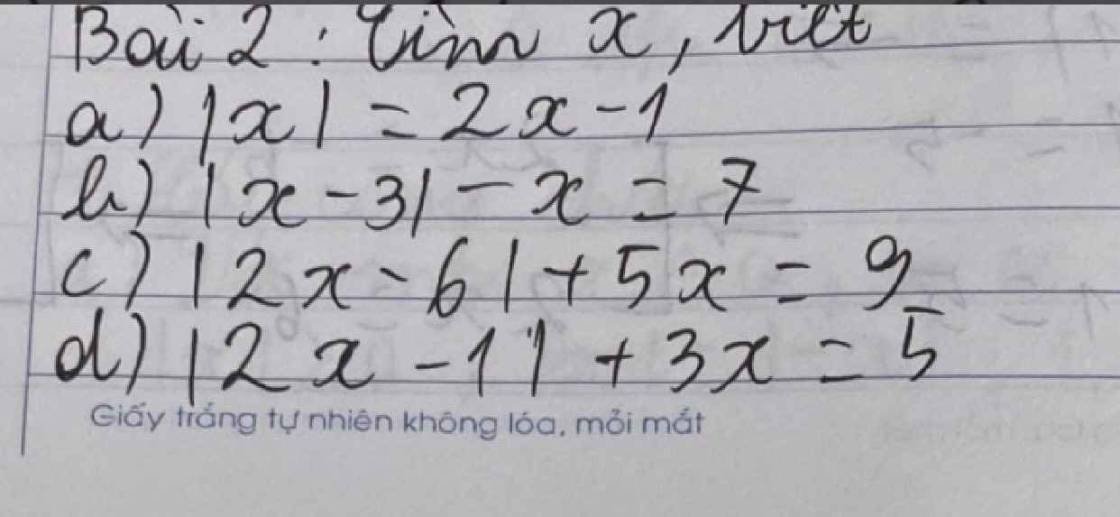 Bài 2: Tìm x, biết
a) |x| = 2x - 1
b) |x - 3| - x = 7
c) |2x - 6| + 5x = 9
d) |2x - 1| + 3x = 5
Giấy trắng tự nhiên không lóa, mỏi mắt